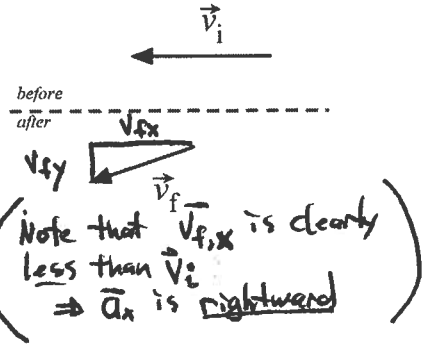 v⃗i
before
after
vfx
vfy
v⃗f
Note that v⃗f,x is clearly
less than v⃗i
⇒ a⃗x is rightward